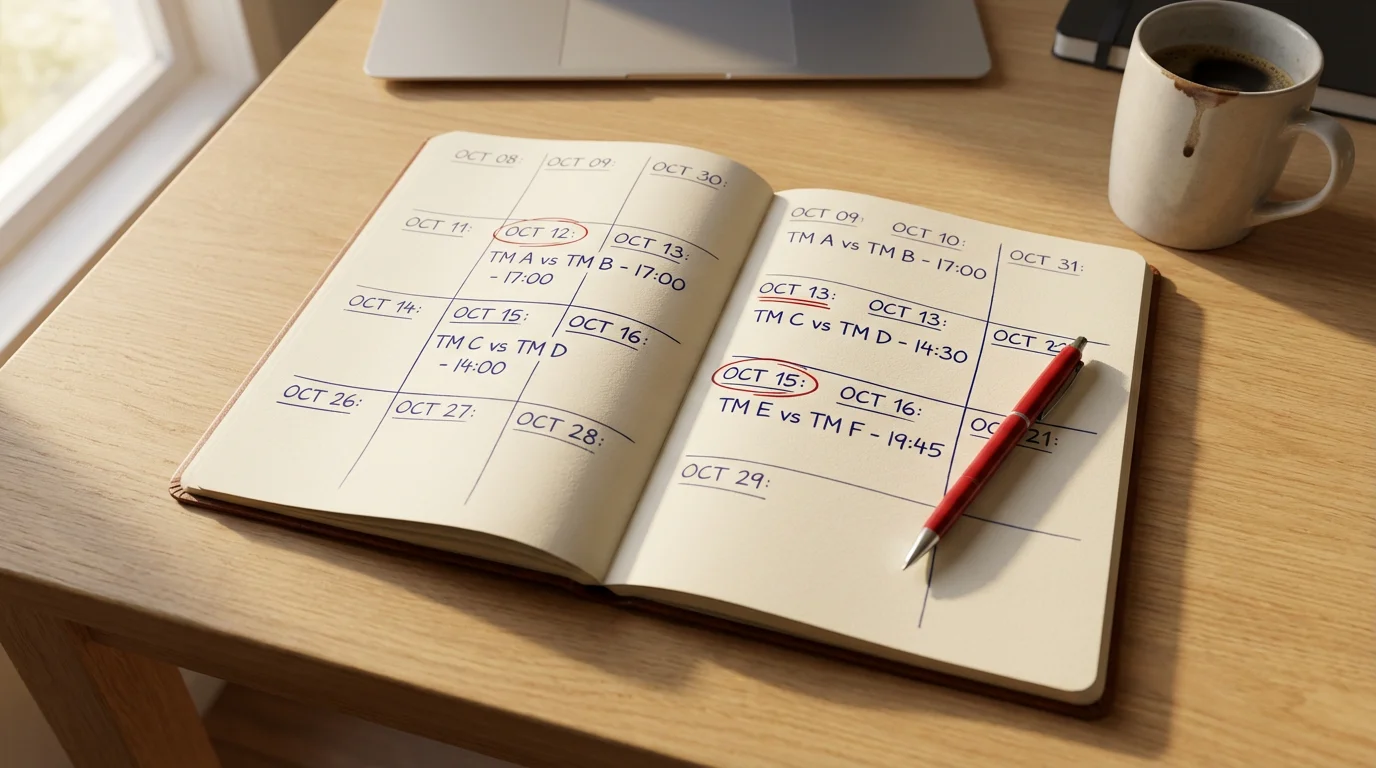 OCT 08: OCT 09: OCT 30:
OCT 11: OCT 12: OCT 13:
TM A vs TM B - 17:00
- 17:00
OCT 14: OCT 15: OCT 16:
TM C vs TM D
- 14:00
OCT 26: OCT 27: OCT 28:
OCT 09: OCT 10: OCT 31:
TM A vs TM B - 17:00
OCT 13: OCT 13: OCT
TM C vs TM D - 14:30
OCT 15: OCT 16: 21:
TM E vs TM F - 19:45
OCT 29: